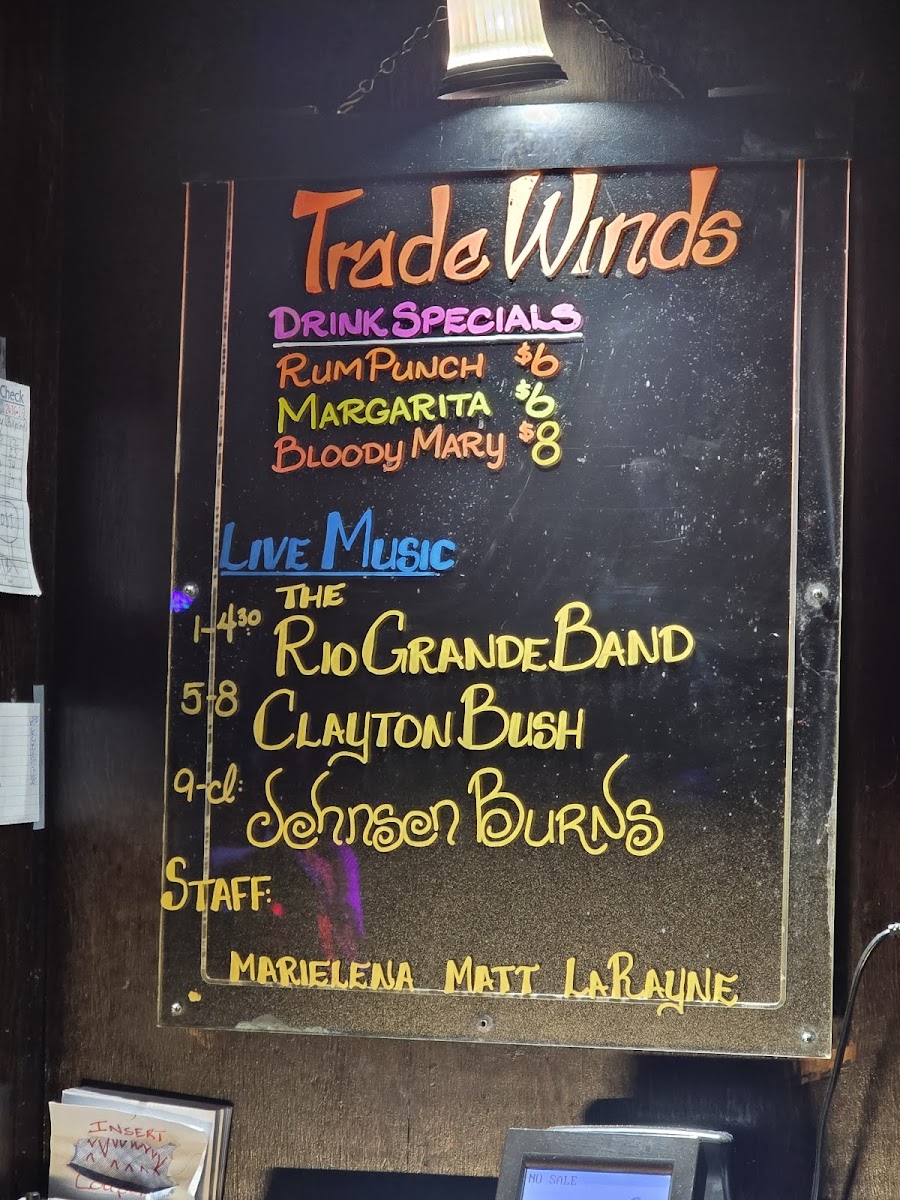 Trade Winds
DRINK SPECIALS
RUM PUNCH $6
MARGARITA $6
BLOODY MARY $8
LIVE MUSIC
THE
1-4:30 RIO GRANDE BAND
5-8 CLAYTON BUSH
9-cl: Johnson Burns
STAFF:
MARIELENA MATT LARAYNE
Check
INSERT
NO SALE